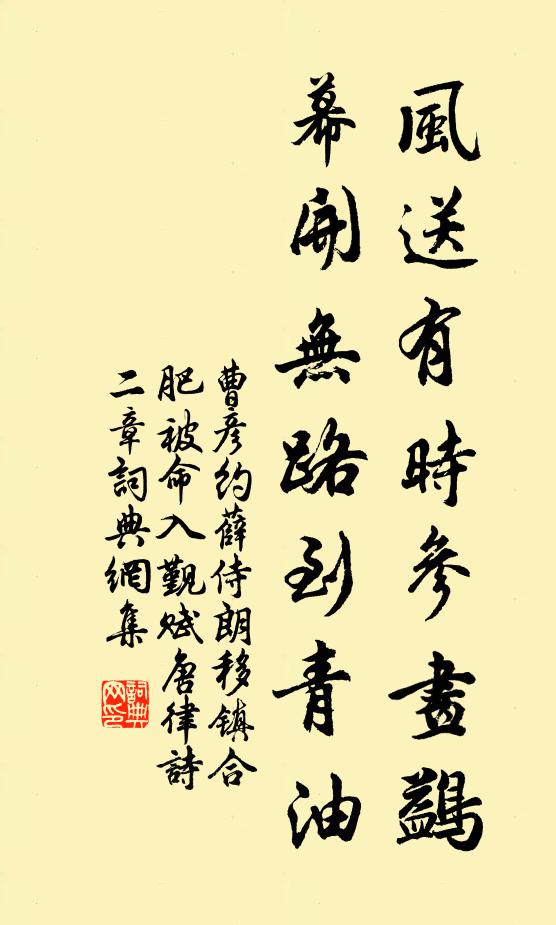 風送有時參畫鷁
幕開無路到青油
曹彦約薛侍朗移鎮合
肥被命入觐赋唐律詩
二章詞典網集
詞典
网印